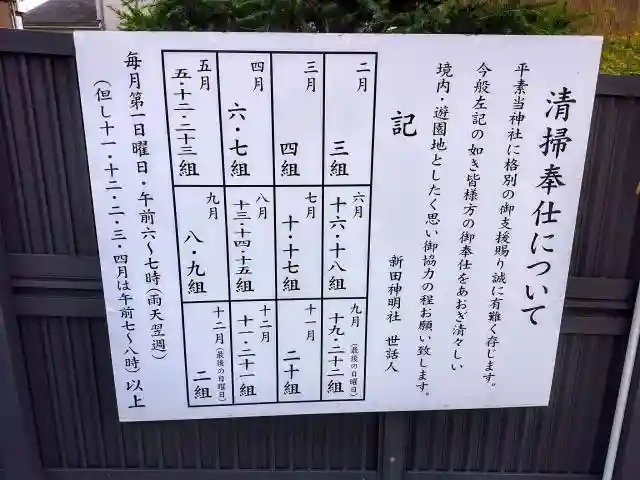 清掃奉仕について
平素当神社に格別の御支援賜り誠に有難く存じます。
今般左記の如き皆様方の御奉仕をあおぎ清々しい
境内・遊園地としたく思い御協力の程お願い致します。
新田神明社 世話人
記
二月 三組
三月 四組
四月 六・七組
五月 五・十二・二十三組
六月 十六・十八組
七月 十・十七組
八月 十三・十四・十五組
九月 八・九組
九月(最後の日曜日) 十九・二十二組
十一月 二十組
十二月 十一・二十一組
十二月(最後の日曜日) 二組
毎月第一日曜日・午前六~七時(雨天翌週)
(但し十一・十二・二・三・四月は午前七~八時)以上